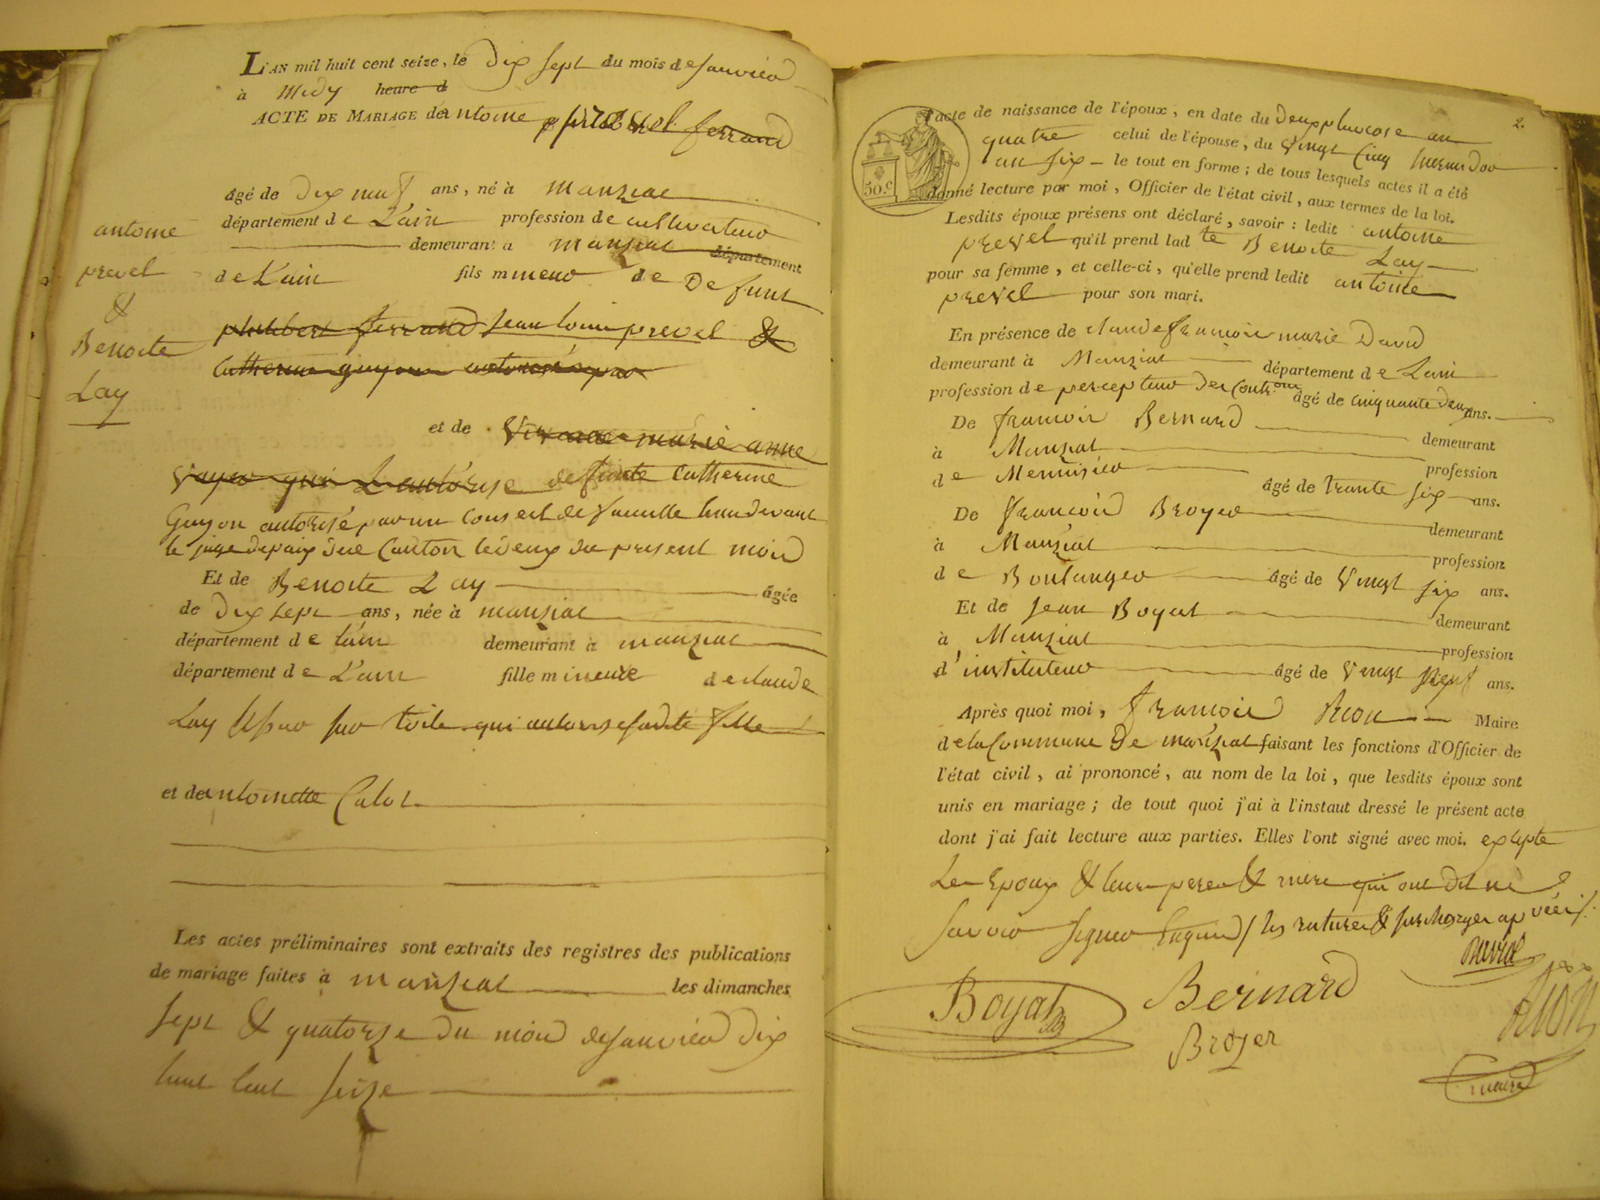 L'AN mil huit cent seize, le Dix Sept du mois de Janvier
à Midy heure d
ACTE DE MARIAGE de antoine prevel ferrand
âgé de Dix neuf ans, né à manziat
département de L'ain profession de cultivateur
demeurant a manziat département
de L'ain fils mineur de Defunt
philibert ferrand Jean louis prevel &
Catherine guyon autorisé par
et de marie anne
qui L'autorise defunte Catherine
Guyon autorisé par un Conseil de famille tenu devant
le juge de paix du Canton le deux du present mois
antoine
prevel
&
Benoite
Lay
Et de Benoite Lay âgée
de Dix sept ans, née à manziat
département de L'ain demeurant à manziat
département de L'ain fille mineure de claude
Lay toile qui autorise sadite fille
et de antoinette Calot
Les actes préliminaires sont extraits des registres des publications
de mariage faites à manziat les dimanches
Sept & quatorze du mois de Janvier dix
huit Cent Seize
2.
l'acte de naissance de l'époux, en date du Deux pluviose an
quatre celui de l'épouse, du Vingt Cinq
an Six le tout en forme; de tous lesquels actes il a été
donné lecture par moi, Officier de l'état civil, aux termes de la loi.
50.c
Lesdits époux présens ont déclaré, savoir: ledit antoine
prevel qu'il prend lad te Benoite Lay
pour sa femme, et celle-ci, qu'elle prend ledit antoine
prevel pour son mari.
En présence de claude francois marie David
demeurant à Manziat département de L'ain
profession de percepteur des Contr.ons âgé de cinquante deux ans.
De francois Bernard demeurant
à Manziat profession
de Menuisier âgé de trante six ans.
De francois Broyer demeurant
à Manziat profession
de Boulanger âgé de Vingt six ans.
Et de Jean Boyat demeurant
à Manziat profession
d'instituteur âgé de Vingt neuf ans.
Après quoi moi, francois Rion Maire
de la Commune De manziat faisant les fonctions d'Officier de
l'état civil, ai prononcé, au nom de la loi, que lesdits époux sont
unis en mariage; de tout quoi j'ai à l'instant dressé le présent acte
dont j'ai fait lecture aux parties. Elles l'ont signé avec moi. exepte
Les Epoux & leurs peres & mere qui ont Dit ne
Savoir Signer Requis / les ratures & surcharges apvées /.
David
Boyat Bernard Rion
Broyer
maire